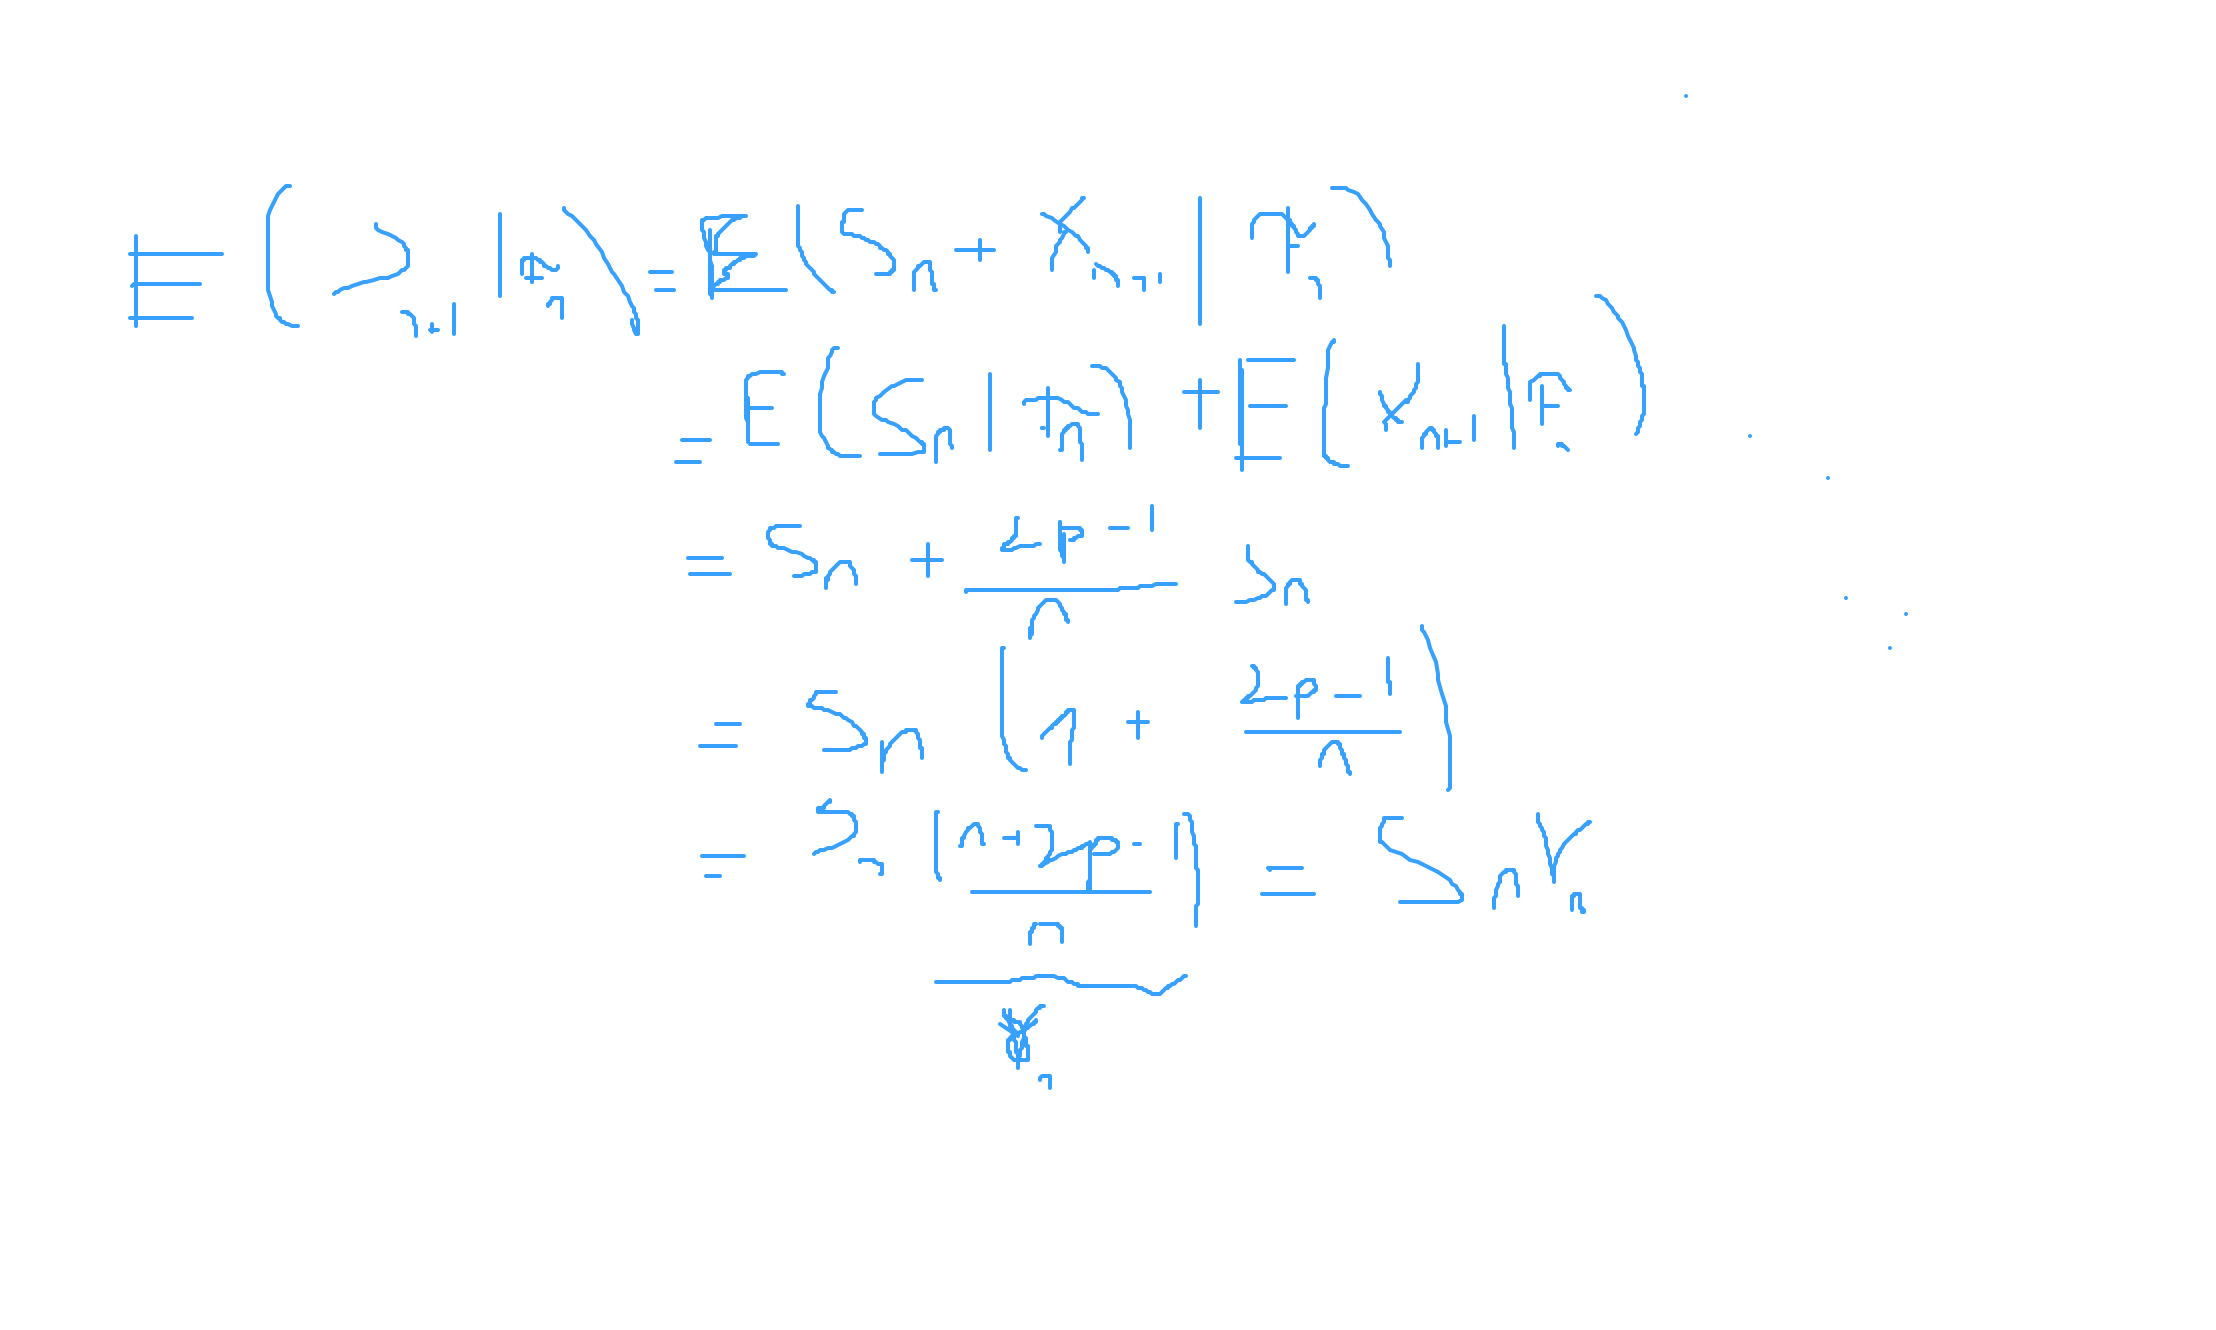 E(S_{n+1} | F_n) = E(S_n + X_{n+1} | F_n)
= E(S_n | F_n) + E(X_{n+1} | F_n)
= S_n + \frac{2p-1}{n} S_n
= S_n (1 + \frac{2p-1}{n})
= S_n (\frac{n+2p-1}{n}) = S_n γ_n
γ_n